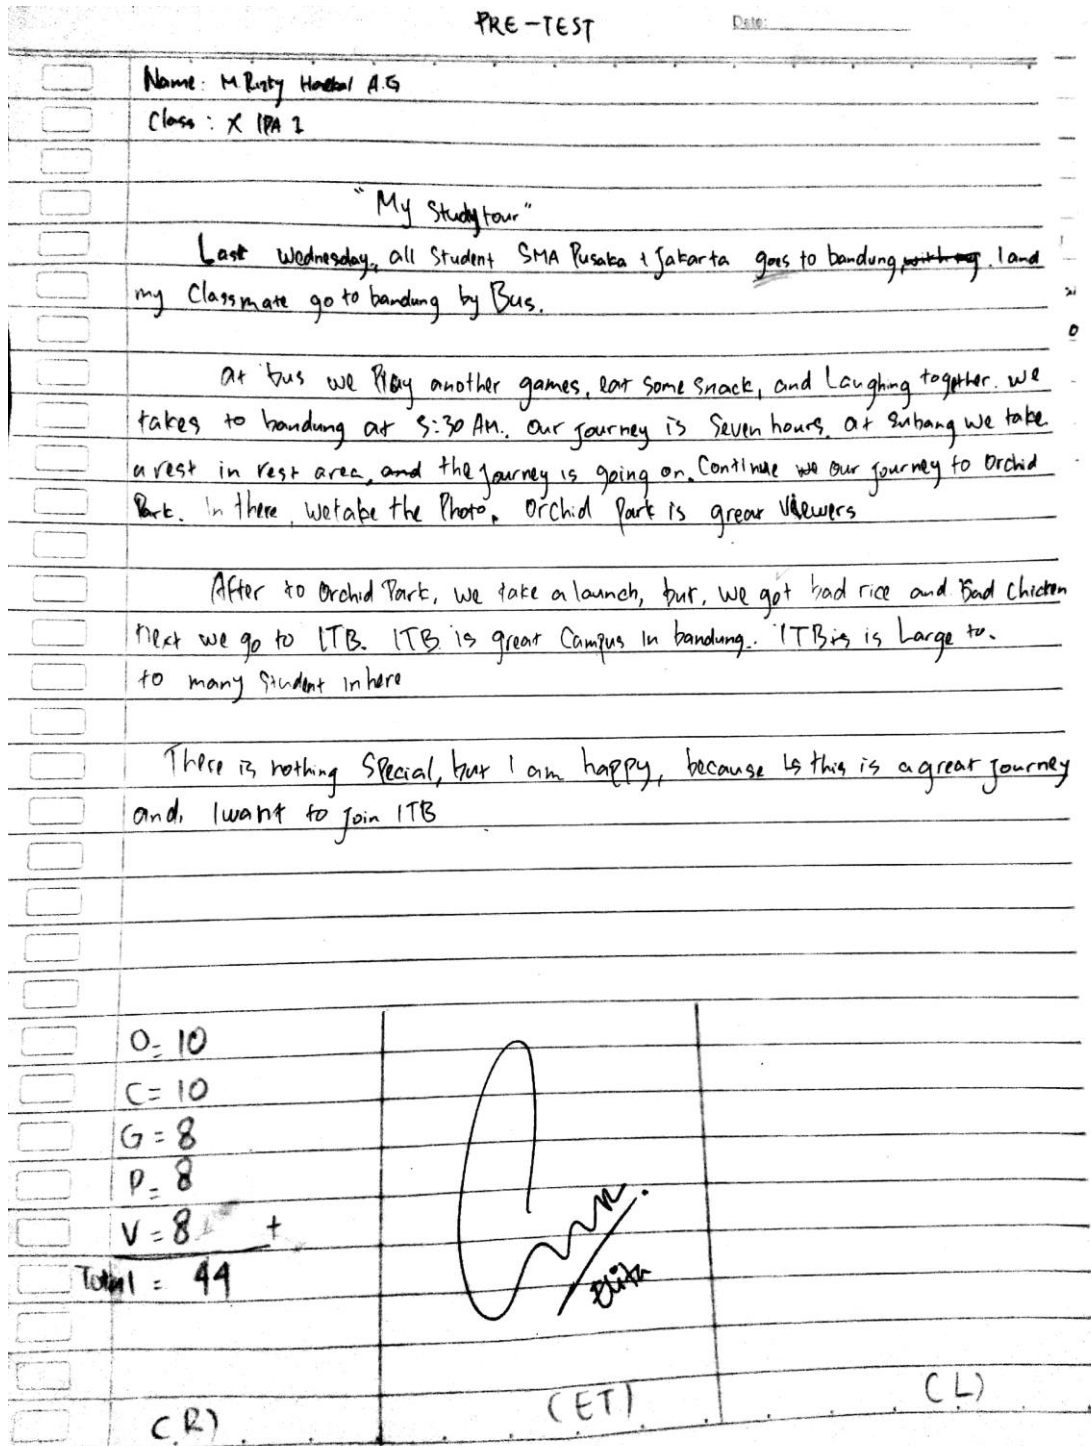 PRE-TEST
Date:
Name: M. Rizky A.G
Class: X IPA 1
"My Study tour"
Last Wednesday, all Student SMA Pusaka 1 Jakarta goes to bandung, . I and
my Classmate go to bandung by Bus.
at bus we Play another games, eat some snack, and Laughing together. we
takes to bandung at 5:30 AM. Our journey is Seven hours. at Subang we take
a rest in rest area, and the journey is going on. Continue we our journey to Orchid
Park. In there, we take the Photo. Orchid Park is great Viewers
After to Orchid Park, we take a launch, but, we got bad rice and Bad Chicken
next we go to ITB. ITB is great Campus In bandung. ITB is is Large to.
to many Student in here
There is nothing Special, but I am happy, because is this is a great journey
and, I want to join ITB
O = 10
C = 10
G = 8
P = 8
V = 8 +
Total = 44
Elita
(R)
(ET)
(L)